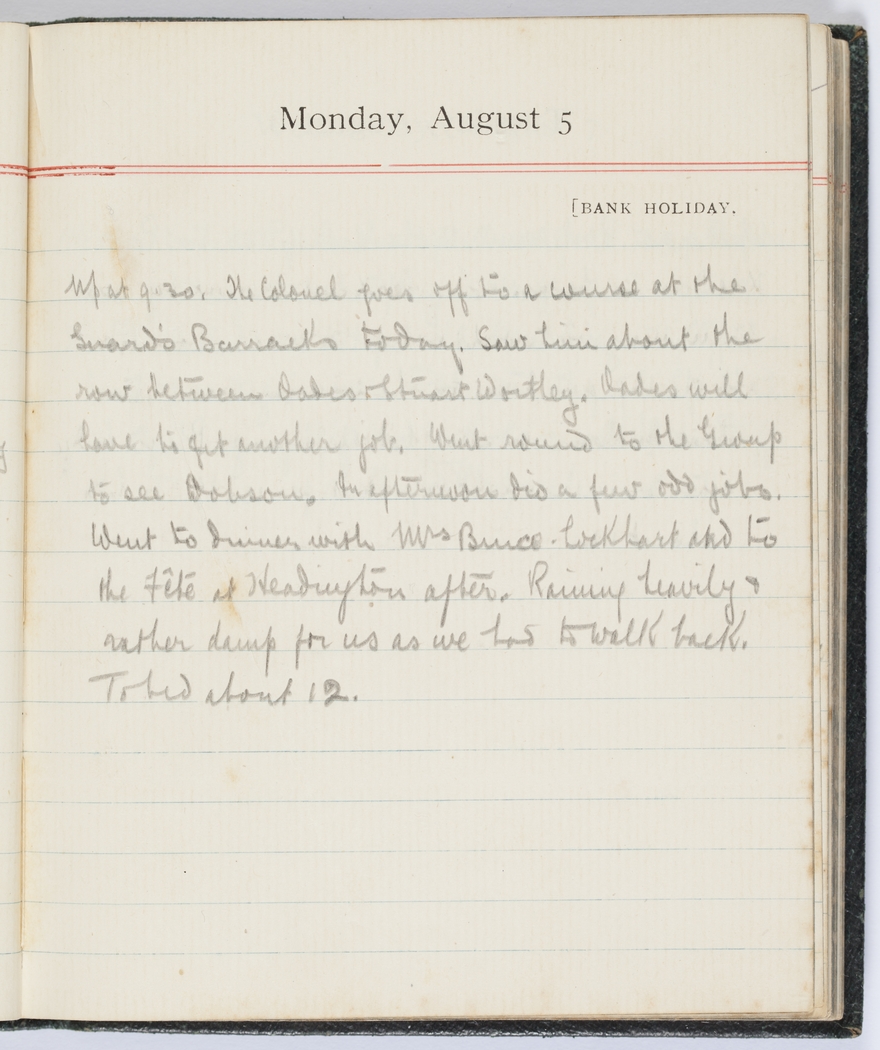 Monday, August 5
[BANK HOLIDAY.
Up at 9.30. The Colonel goes off to a course at the
Guard's Barracks today. Saw him about the
row between Dades & Stuart Wortley. Dades will
have to get another job. Went round to the Group
to see Dobson. In afternoon did a few odd jobs.
Went to dinner with Mrs Bruce-Lockhart and to
the Fête at Headington after. Raining heavily &
rather damp for us as we had to walk back.
To bed about 12.